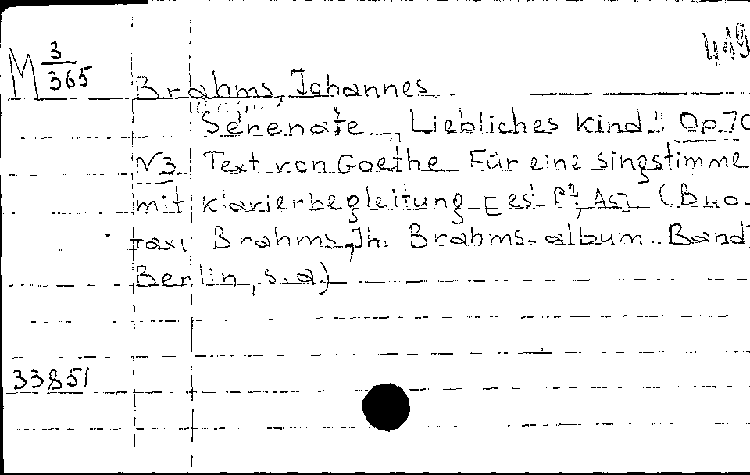 419
M 3/365
Brahms, Johannes
Serenate „Liebliches Kind" Op 70
N3 Text von Goethe Für eine singstimme
mit klavierbegleitung [es¹-f², As] (Buo-
Brahms, Jh. Brahms-album. Band
Berlin, s.a)
33851